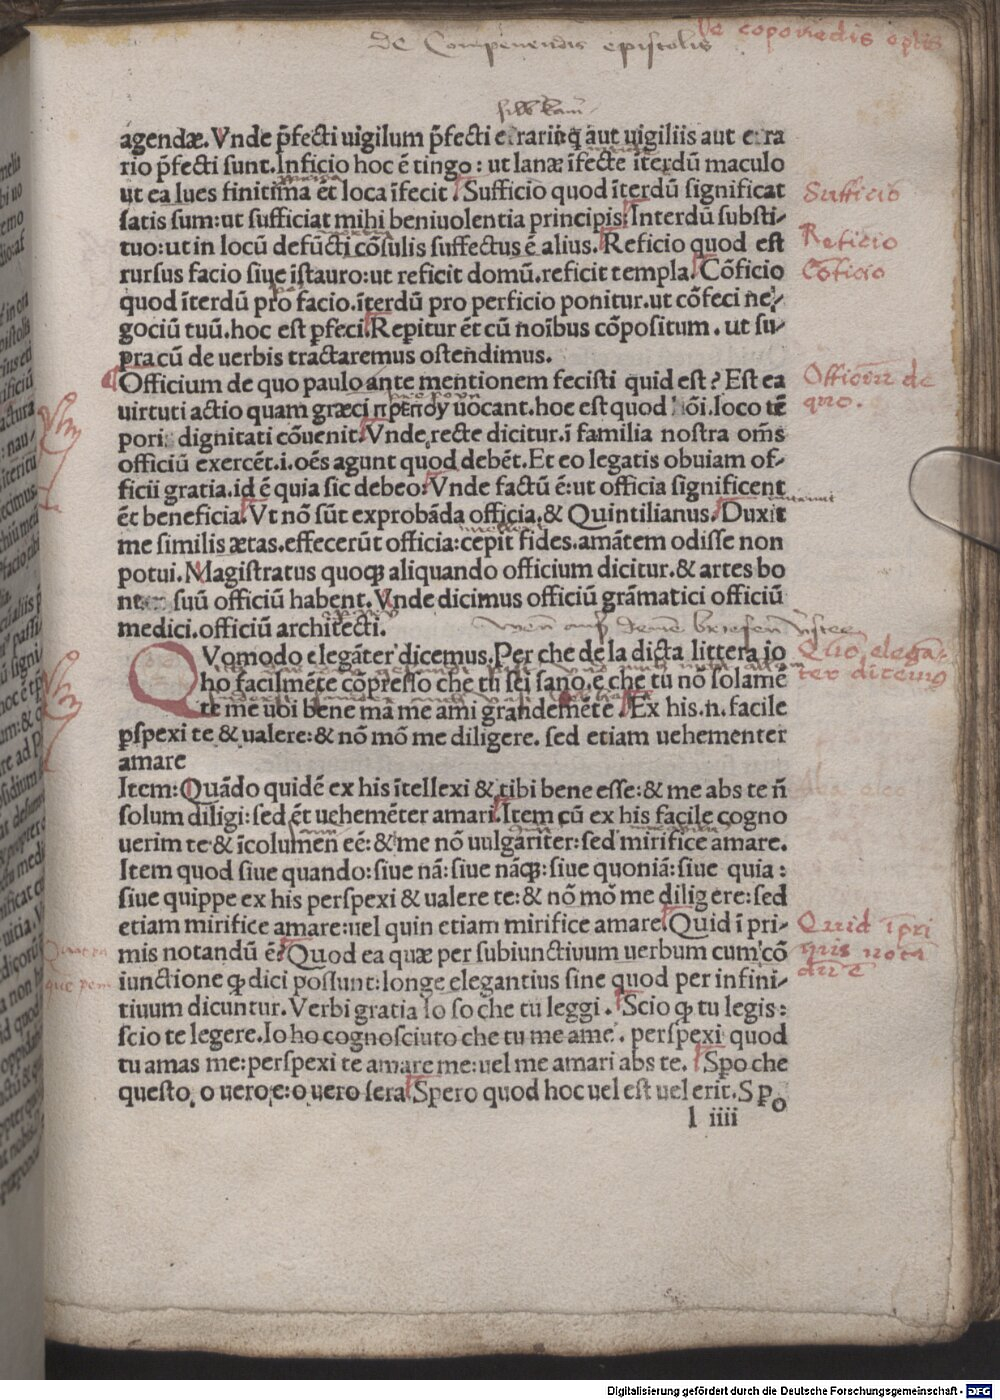 de Componendis epistolis
De coponedis eptis
agendæ. Vnde p̃fecti uigilum p̃fecti aut uigiliis aut
rio p̃fecti sunt. Inficio hoc ē tingo: ut lanæ īfecte īterdū maculo
ut ea lues finitima ēt loca īfecit Sufficio quod īterdū significat
satis sum: ut sufficiat mihi beniuolentia principis: Interdū substi-
tuo: ut in locū defūcti cōsulis suffectus ē alius. Reficio quod est
rursus facio siue īstauro: ut reficit domū. reficit templa. Cōficio
quod īterdū pro facio. īterdū pro perficio ponitur. ut cōfeci ne-
gociū tuū. hoc est ꝑfeci. Reꝑitur ēt cū noībus cōpositum. ut su-
pra cū de uerbis tractaremus ostendimus.
Officium de quo paulo ante mentionem fecisti quid est? Est ea
uirtuti actio quam græci πρεπον uocant. hoc est quod loco tē
pori dignitati cōuenit. Vnde recte dicitur. ī familia nostra om̄s
officiū exercēt. i. oēs agunt quod debēt. Et eo legatis obuiam of-
ficii gratia. id ē quia sic debeo: Vnde factū ē: ut officia significent
ēt beneficia. Vt nō sūt exprobāda officia. & Quintilianus. Duxit
me similis ætas. effecerūt officia: cepit fides. amātem odisse non
potui. Magistratus quoqꝫ aliquando officium dicitur. & artes bo
suū officiū habent. Vnde dicimus officiū grāmatici officiū
medici. officiū architecti.
QVomodo elegāter dicemus. Per che de la dicta littera io
ho facilmēte cōpresso che tu sei sano. e che tu nō solamē
te me uoi bene ma me ami grandemēte. Ex his .n. facile
ꝑspexi te & ualere: & nō mō me diligere. sed etiam uehementer
amare
Item: Quādo quidē ex his ītellexi & tibi bene esse: & me abs te ñ
solum diligi: sed ēt uehemēter amari. Item cū ex his facile cogno
uerim te & īcolumen eē: & me nō uulgariter: sed mirifice amare.
Item quod siue quando: siue nā: siue nāqꝫ: siue quoniā: siue quia:
siue quippe ex his perspexi & ualere te: & nō mō me diligere: sed
etiam mirifice amare: uel quin etiam mirifice amare. Quid ī pri-
mis notandū ē? Quod ea quæ per subiunctiuum uerbum cum cō
iunctione ꝙ dici possunt: longe elegantius sine quod per infini-
tiuum dicuntur. Verbi gratia Io so che tu leggi. Scio ꝙ tu legis:
scio te legere. Io ho cognosciuto che tu me ame. perspexi quod
tu amas me: perspexi te amare me: uel me amari abs te. Spo che
questo, o uero e: o uero sera. Spero quod hoc uel est uel erit. Sꝑo
l iiii
Sufficio
Reficio
Cōficio
Officiū de
quo.
Quō elegā-
ter dicemus
Quid īpri
mis nota
du ē
Digitalisierung gefördert durch die Deutsche Forschungsgemeinschaft - DFG